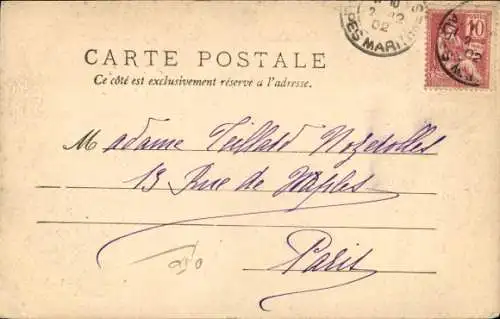 10
2 - 12
02
ES MARITIMES
10
CARTE POSTALE
Ce côté est exclusivement réservé a l'adresse.
Madame Teillard Nozerolles
13 Rue de Naples
Paris